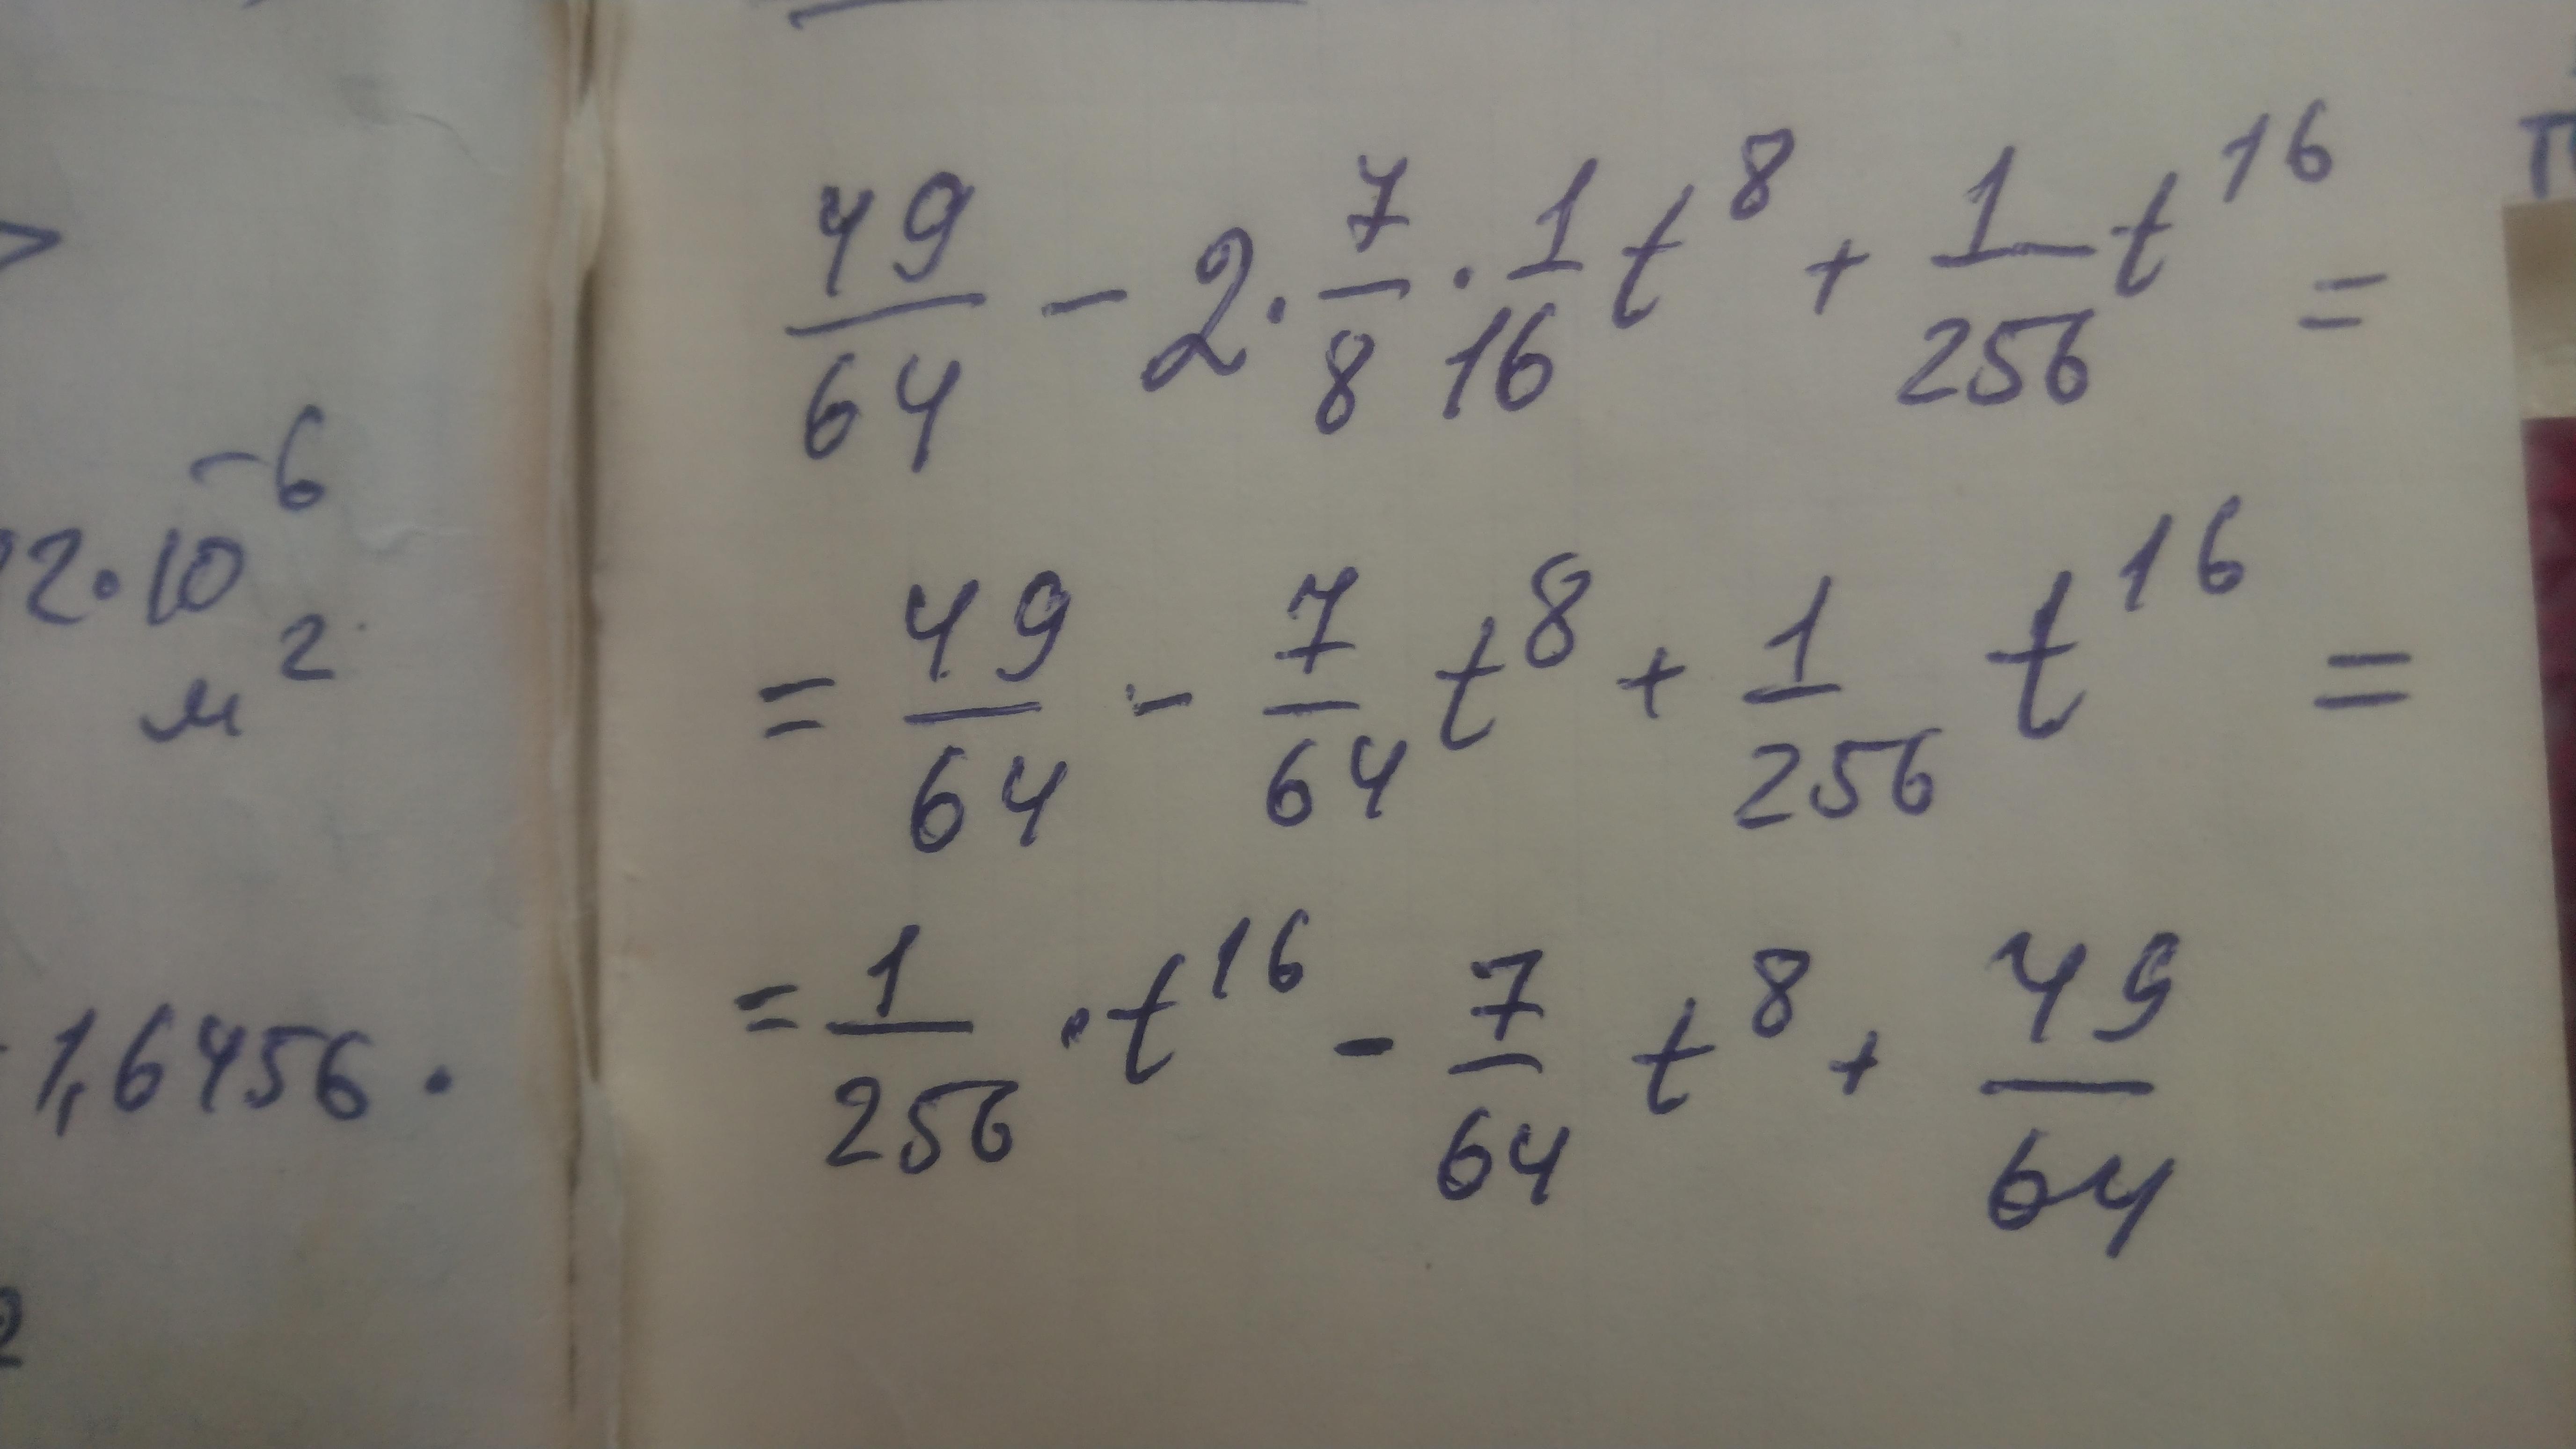 2·10⁻⁶
м²
1,6456 ·
49/64 - 2 · 7/8 · 1/16 t⁸ + 1/256 t¹⁶ =
= 49/64 - 7/64 t⁸ + 1/256 t¹⁶ =
= 1/256 · t¹⁶ - 7/64 t⁸ + 49/64